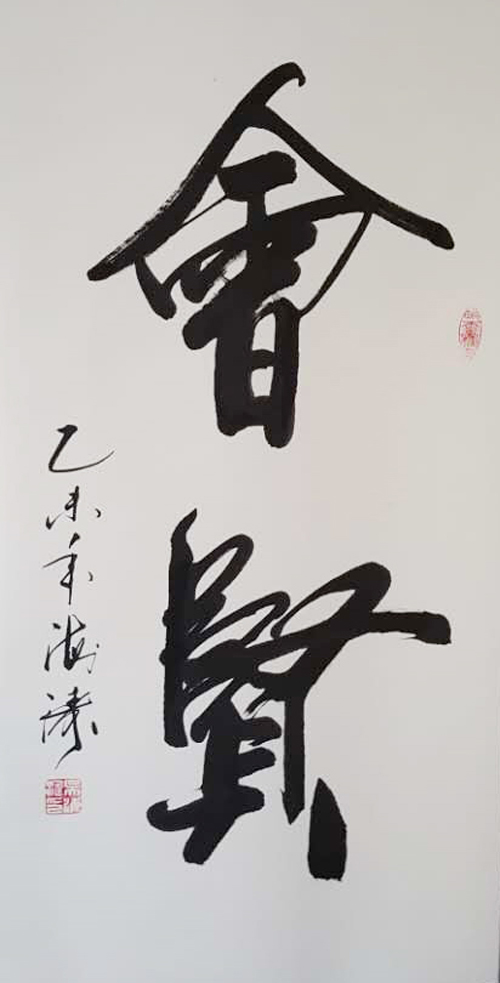 會賢
乙未年海濤